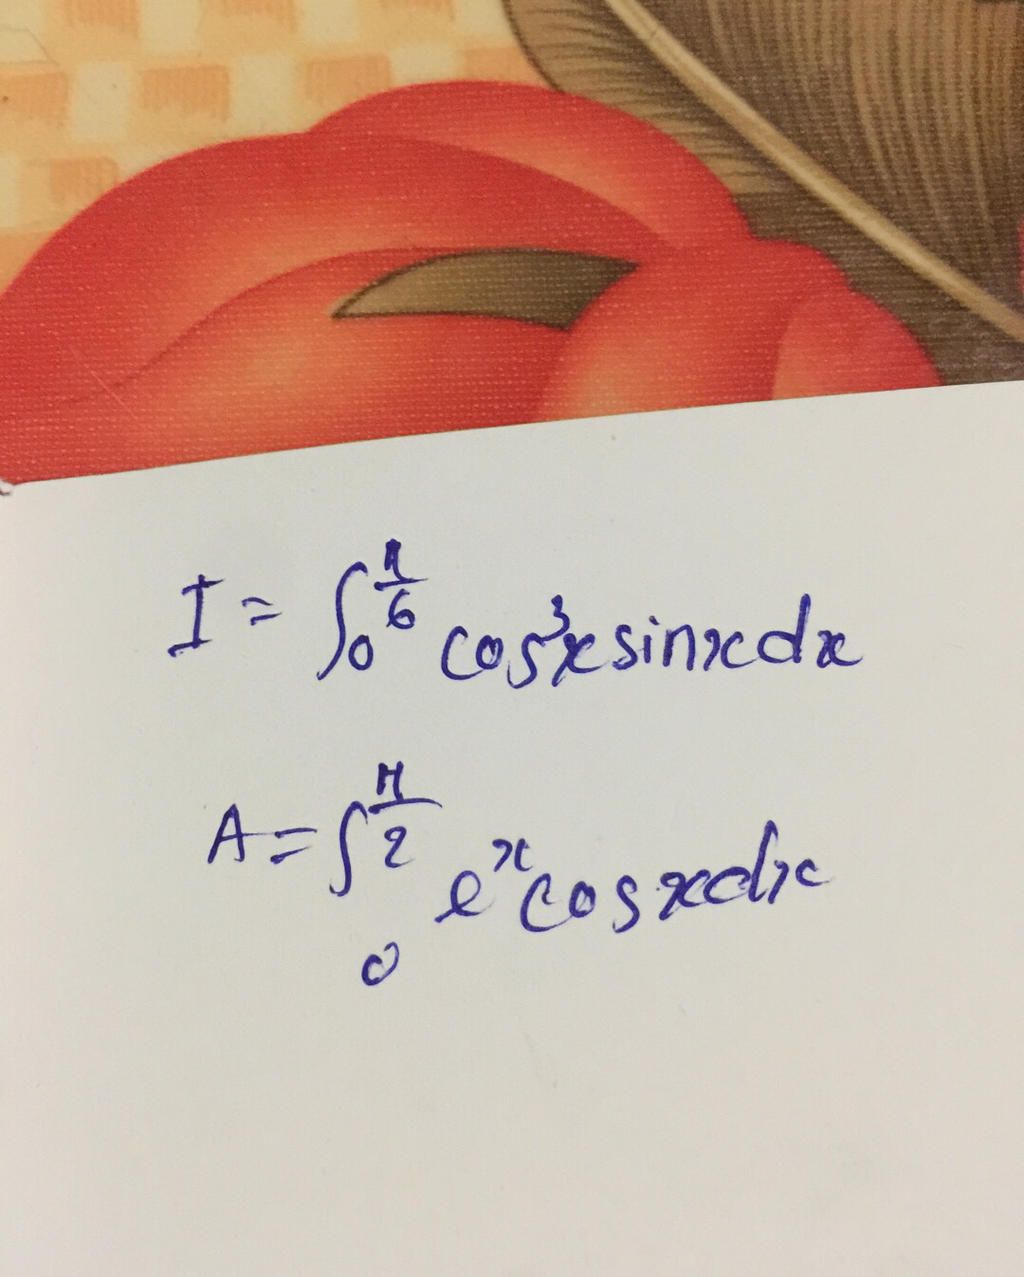 I = ∫₀^(π/6) cos³x sinx dx
A = ∫₀^(π/2) eˣ cosx dx